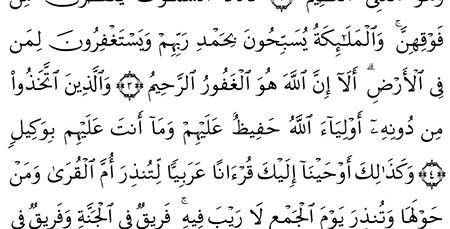 وَهُوَ ٱلْعَلِىُّ ٱلْعَظِيمُ تَكَادُ ٱلسَّمَٰوَٰتُ يَتَفَطَّرْنَ مِن
فَوْقِهِنَّ ۚ وَٱلْمَلَٰٓئِكَةُ يُسَبِّحُونَ بِحَمْدِ رَبِّهِمْ وَيَسْتَغْفِرُونَ لِمَن
فِى ٱلْأَرْضِ ۗ أَلَآ إِنَّ ٱللَّهَ هُوَ ٱلْغَفُورُ ٱلرَّحِيمُ ﴿٣﴾ وَٱلَّذِينَ ٱتَّخَذُوا۟
مِن دُونِهِۦٓ أَوْلِيَآءَ ٱللَّهُ حَفِيظٌ عَلَيْهِمْ وَمَآ أَنتَ عَلَيْهِم بِوَكِيلٍ
﴿٤﴾ وَكَذَٰلِكَ أَوْحَيْنَآ إِلَيْكَ قُرْءَانًا عَرَبِيًّا لِّتُنذِرَ أُمَّ ٱلْقُرَىٰ وَمَنْ
حَوْلَهَا وَتُنذِرَ يَوْمَ ٱلْجَمْعِ لَا رَيْبَ فِيهِ ۚ فَرِيقٌ فِى ٱلْجَنَّةِ وَفَرِيقٌ فِى